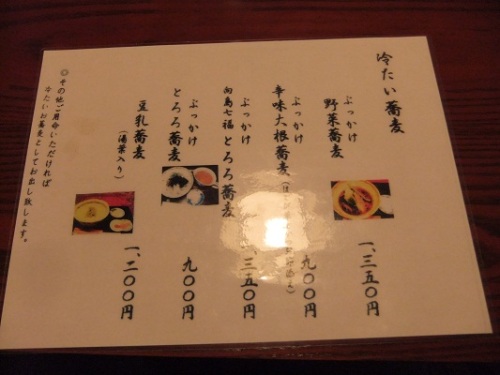 冷たい蕎麦
ぶっかけ
野菜蕎麦
一、三五〇円
ぶっかけ
辛味大根蕎麦
九〇〇円
ぶっかけ
向島七福とろろ蕎麦
一、三五〇円
ぶっかけ
とろろ蕎麦
九〇〇円
豆乳蕎麦(湯葉入り)
一、二〇〇円
◎その他ご用命いただければ
冷たいお蕎麦としてお出し致します。